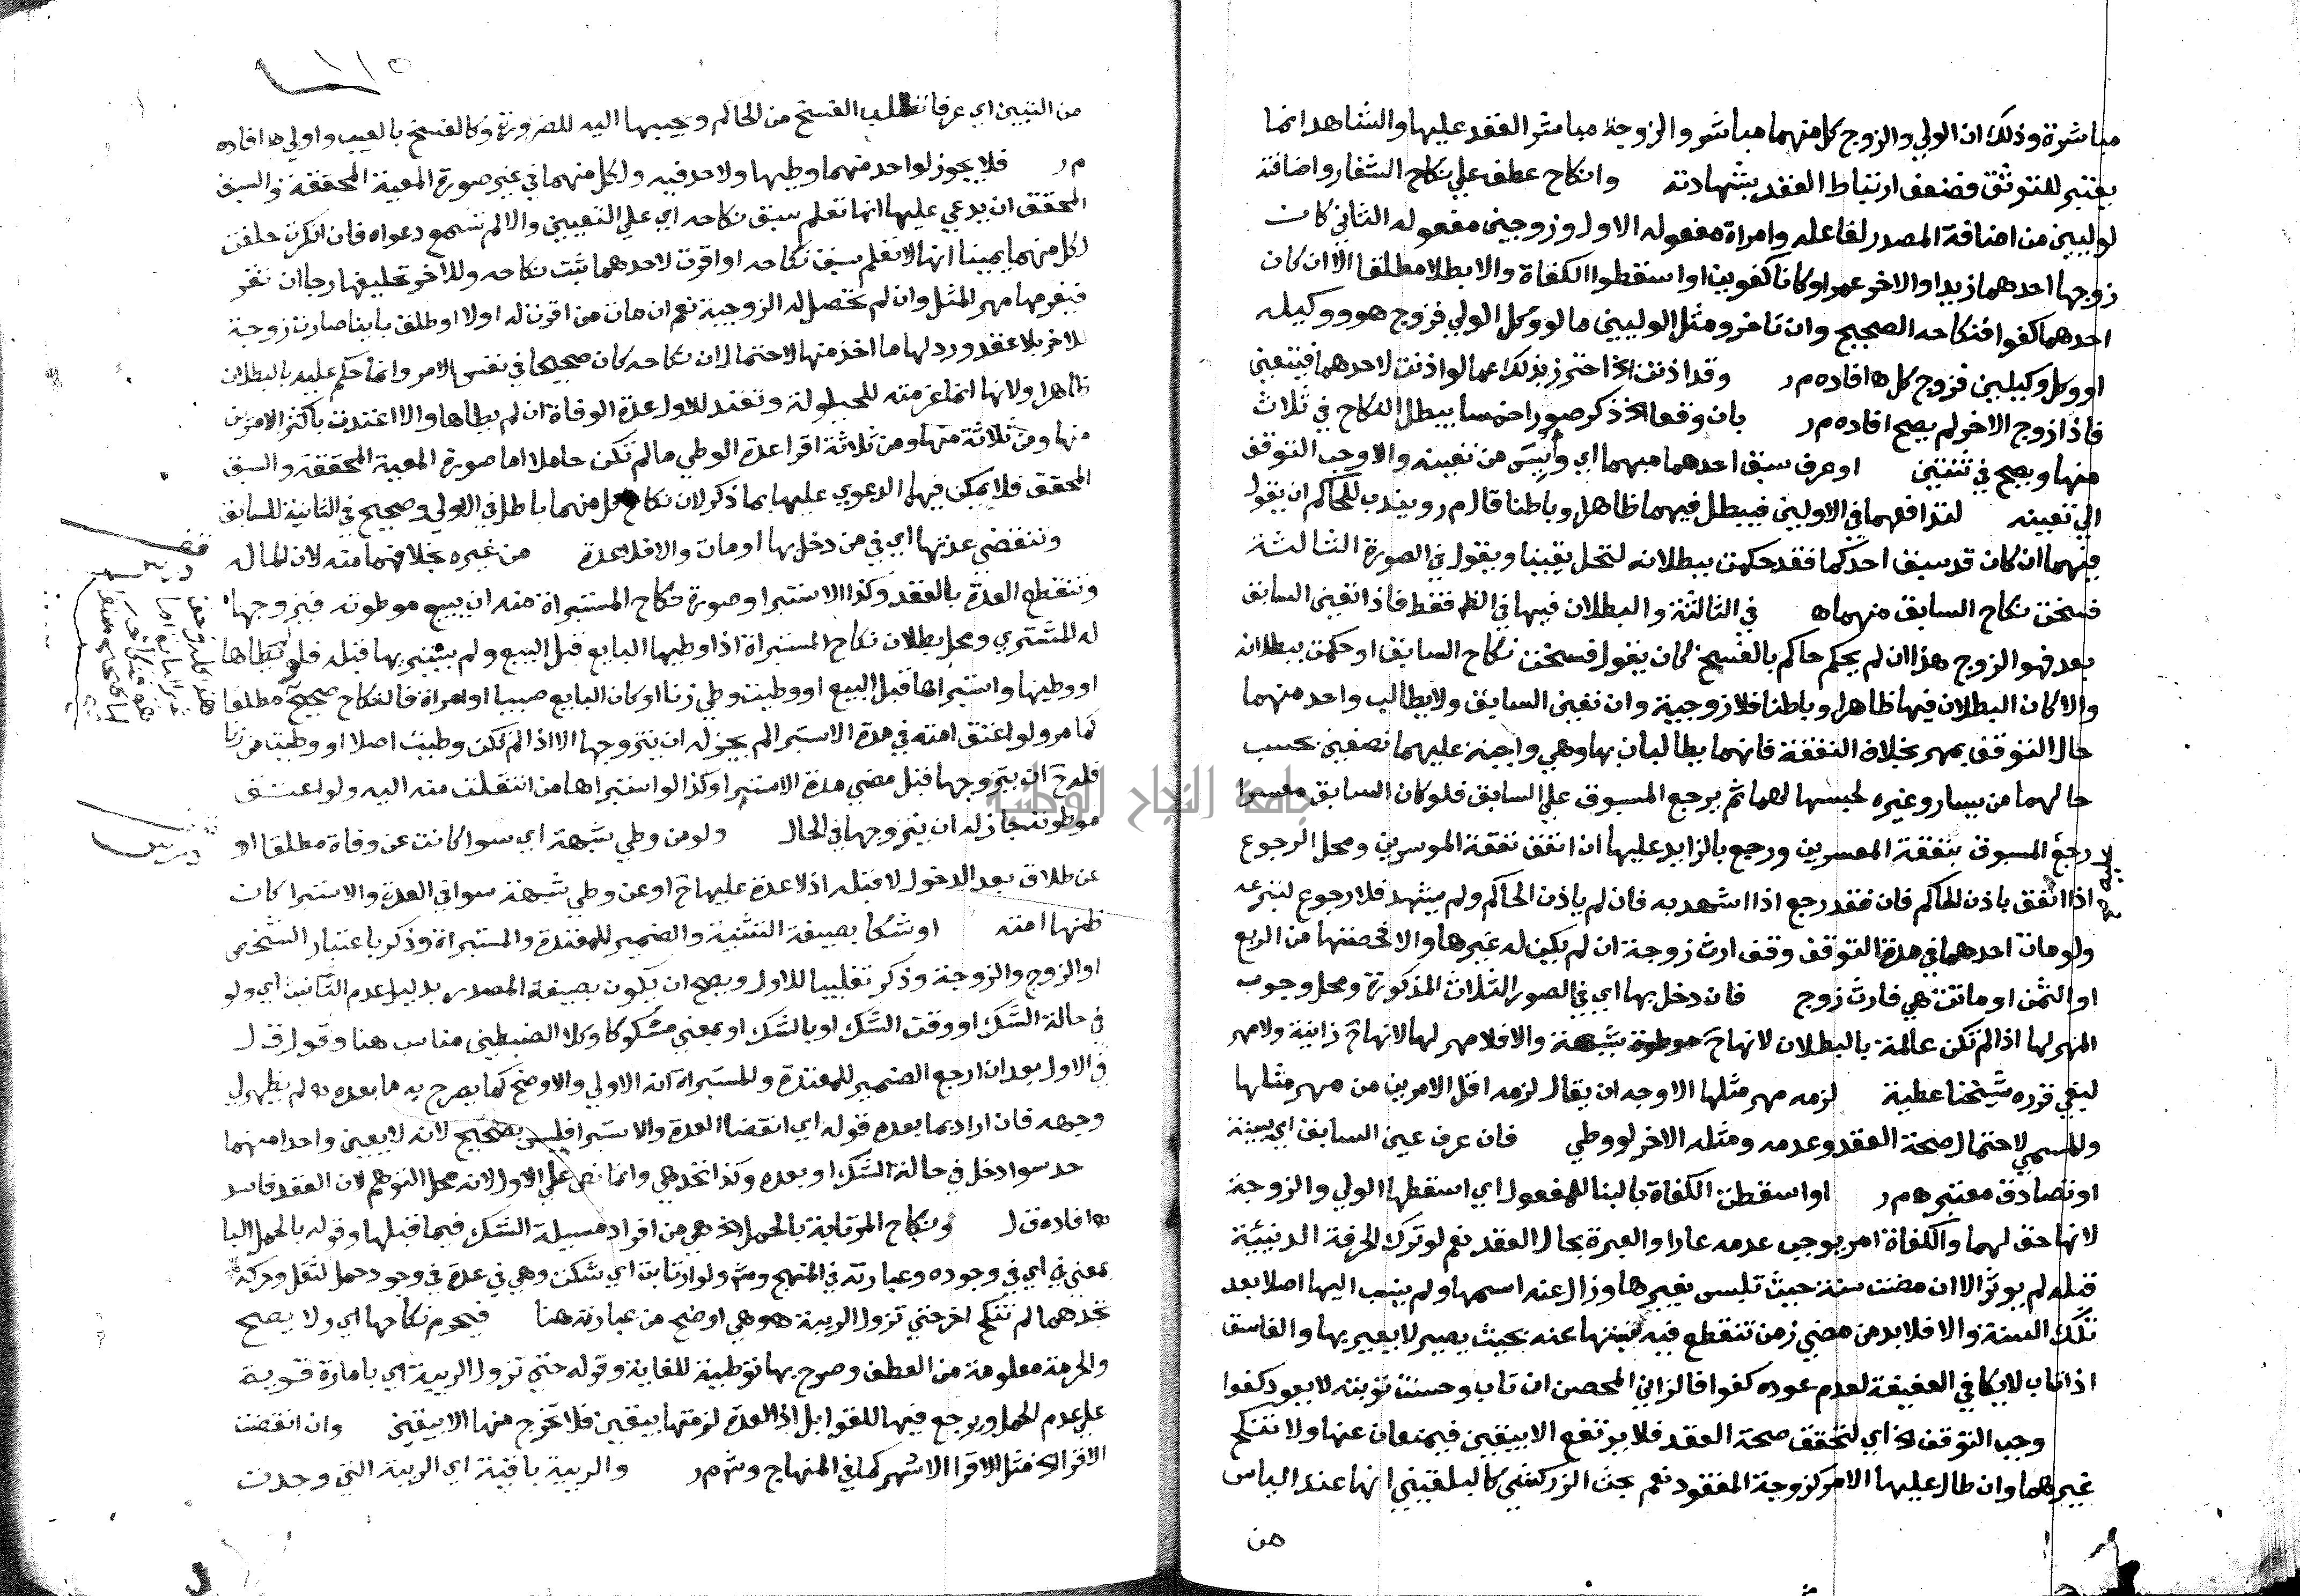 مباشرة وذلك ان الولي والزوج كل منهما مباشر والزوجة مباشر العقد عليها والشاهد انما
يعتبر للتوثق فضعف ارتباط العقد بشهادته وانكاح عطف علي نكاح الشغار واضافته
لوليين من اضافة المصدر لفاعله وامراة مفعوله الاول وزوجين مفعوله الثاني كان
زوجها احدهما زيدا والاخر عمرا وكانا كفوين او اسقطوا الكفاة والا بطلا مطلقا الا ان كان
احدهما كفوا فنكاحه الصحيح وان تاخر ومثل الوليين ما لو وكل الولي فزوج هو ووكيله
او وكل وكيلين فزوج كل اه افاده م ر وقد اذنت الخ احترز بذلك عما لو اذنت لاحدهما فيتعين
فاذا زوج الاخر لم يصح افاده م ر بان وقعا الخ ذكر صورا خمسا يبطل النكاح في ثلاث
منها ويصح في ثنتين او عرف سبق احدهما مبهما اي وأيس من تعيينه والا وجب التوقف
الي تعيينه لتدافعهما في الاوليين فيبطل فيهما ظاهرا وباطنا قال م ر ويندب للحاكم ان يقول
فيهما ان كان قد سبق احدكما فقد حكمت ببطلانه لتحل يقينا ويقول في الصورة الثالثة
فسخت نكاح السابق منهما اه في الثالثة والبطلان فيها في الظاهر فقط فاذا تعين السابق
بعد فهو الزوج هذا ان لم يحكم حاكم بالفسخ كان يقول فسخت نكاح السابق او حكمت ببطلانه
والا كان البطلان فيها ظاهرا وباطنا فلا زوجية وان تعين السابق ولا يطالب واحد منهما
حال التوقف بمهر بخلاف النفقة فانهما يطالبان بها وهي واجبة عليهما نصفين بحسب
حالهما من يسار وغيره لحبسها لهما ثم يرجع المسبوق علي السابق فلو كان السابق معسرا
رجع المسبوق بنفقة المعسرين ورجع بالزايد عليها ان انفق نفقة الموسرين ومحل الرجوع
اذا انفق باذن الحاكم فان فقد رجع اذا اشهد به فان لم ياذن الحاكم ولم يشهد فلا رجوع لتبرعه
ولو مات احدهما في مدة التوقف وقف ارث زوجة ان لم يكن له غيرها والا فحصتها من الربع
او الثمن او ماتت هي فارث زوج فان دخل بها اي في الصور الثلاث المذكورة ومحل وجوب
المهر لها اذا لم تكن عالمة بالبطلان لانها ح موطوة بشبهة والا فلا مهر لها لانها ح زانية ولا مهر
لبغي قرره شيخنا عطية لزمه مهر مثلها الاوجه ان يقال لزمه اقل الامرين من مهر مثلها
والمسمي لاحتمال صحة العقد وعدمه ومثله الاخر لو وطي فان عرف عين السابق اي ببينة
او تصادق معتبر اه م ر او اسقطت الكفاة بالبنا للمفعول اي اسقطها الولي والزوجة
لانها حق لهما والكفاة امر يوجب عدمه عارا والعبرة بحال العقد نعم لو ترك الحرفة الدنيئية
قبله لم يوثر الا ان مضت سنة حيث تلبس بغيرها وزال عنه اسمها ولم ينسب اليها اصلا بعد
تلك السنة والا فلا بد من مضي زمن تنقطع فيه نسبتها عنه بحيث يصير لا يعير بها والفاسق
اذا تاب لا يكافي العفيفة لعدم عوده كفوا فالزاني المحصن ان تاب وحسنت توبته لا يعود كفوا
وجب التوقف الخ اي لتحقق صحة العقد فلا يرتفع الا بيقين فيمنعان عنها ولا تنكح
غيرهما وان طال عليها الامر كزوجة المفقود نعم بحث الزركشي كالبلقيني انها عند الياس
من
من التبين اي عرفا تطلب الفسخ من الحاكم ويجيبها اليه للضرورة وكالفسخ بالعيب واولي اه افاده
م ر فلا يجوز لواحد منهما وطيها ولا حد فيه ولكل منهما في غير صورة المعية المحققة والسبق
المحقق ان يدعي عليها انها تعلم سبق نكاحه اي علي التعيين والا لم تسمع دعواه فان انكرت حلفت
لكل منهما يمينا انها لا تعلم سبق نكاحه او اقرت لاحدهما ثبت نكاحه وللاخر تحليفها رجا ان تقر
فيغرمها مهر المثل وان لم تحصل له الزوجية نعم ان مات من اقرت له اولا او طلق باينا صارت زوجة
للاخر بلا عقد ورد لها ما اخذ منها لاحتمال ان نكاحه كان صحيحا في نفس الامر وانما حكم عليه بالبطلان
ظاهرا ولانها انما غرمته للحيلولة وتعتد للاول عدة الوفاة ان لم يطاها والا اعتدت باكثر الامرين
منها ومن ثلاثة منها ومن ثلاثة اقرا عدة الوطي ما لم تكن حاملا اما صورة المعية المحققة والسبق
المحقق فلا يمكن فيهما الدعوي عليها بما ذكر لان نكاح كل منهما باطل في الاولي وصحيح في الثانية للسابق
وتنقضي عدتها اي في من دخل بها او مات والا فلا عدة من غيره بخلافهما منه لان المال له
وتنقطع العدة بالعقد وكذا الاستبرا وصورة نكاح المستبراة منه ان يبيع موطوته فيزوجها
له المشتري ومحل بطلان نكاح المستبراة اذا وطيها البايع قبل البيع ولم يستبريها قبله فلو لم يطاها
او وطيها واستبراها قبل البيع او وطيت وطي زنا او كان البايع صبيا او امراة فالنكاح صحيح مطلقا
كما مر ولو اعتق امته في مدة الاستبرا لم يجز له ان يتزوجها الا اذا لم تكن وطيت اصلا او وطيت من زنا
فله ح ان يتزوجها قبل مضي مدة الاستبرا وكذا لو استبراها من انتقلت منه اليه ولو اعتق
موطوته جاز له ان يتزوجها في الحال ولو من وطي شبهة اي سوا كانت عن وفاة مطلقا او
عن طلاق بعد الدخول لا قبله اذ لا عدة عليها ح او عن وطي شبهة سوا في العدة والاستبرا كان
ظنها امته او شكا بصيغة التثنية والضمير للمعتدة والمستبراة وذكر باعتبار الشخص
او الزوج والزوجة وذكر تغليبا للاول ويصح ان يكون بصيغة المصدر بدليل عدم التانيث اي ولو
في حالة الشك او وقت الشك او بالشك او بمعني مشكوكا وكلا الضبطين مناسب هنا وقول ق ل
في الاول بعد ان ارجع الضمير للمعتدة والمستبراة انه الاولي والاوضح كما يصرح به ما بعده اه لم يظهر لي
وجهه فان اراد بما بعده قوله اي انقضا العدة والاستبرا فليس بصحيح لانه لا يعين واحدا منهما
حد سوا دخل في حالة الشك او بعده وكذا تحد هي وانما نص علي الاول لانه محل التوهم لان العقد فاسد
اه افاده ق ل ونكاح المرتابة بالحمل الخ هي من افراد مسيلة الشك فيما قبلها وقوله بالحمل البا
بمعني في اي في وجوده وعبارته في المنهج ومتن ولو ارتابت اي شكت وهي في عدة في وجود حمل لثقل وحركة
تجدهما لم تنكح اخر حتي تزول الريبة اه وهي اوضح من عبارته هنا فيحرم نكاحها اي ولا يصح
والحرمة معلومة من العطف وصرح بها توطية للغاية وقوله حتي تزول الريبة اي بامارة قوية
علي عدم الحمل ويرجع فيها للقوابل اذ العدة لزمتها بيقين فلا تخرج منها الا بيقين وان انقضت
الاقرا الخ مثل الاقرا الاشهر كما في المنهاج وش م ر والريبة باقية اي الريبة التي وجدت
جامعة النجاح الوطنية